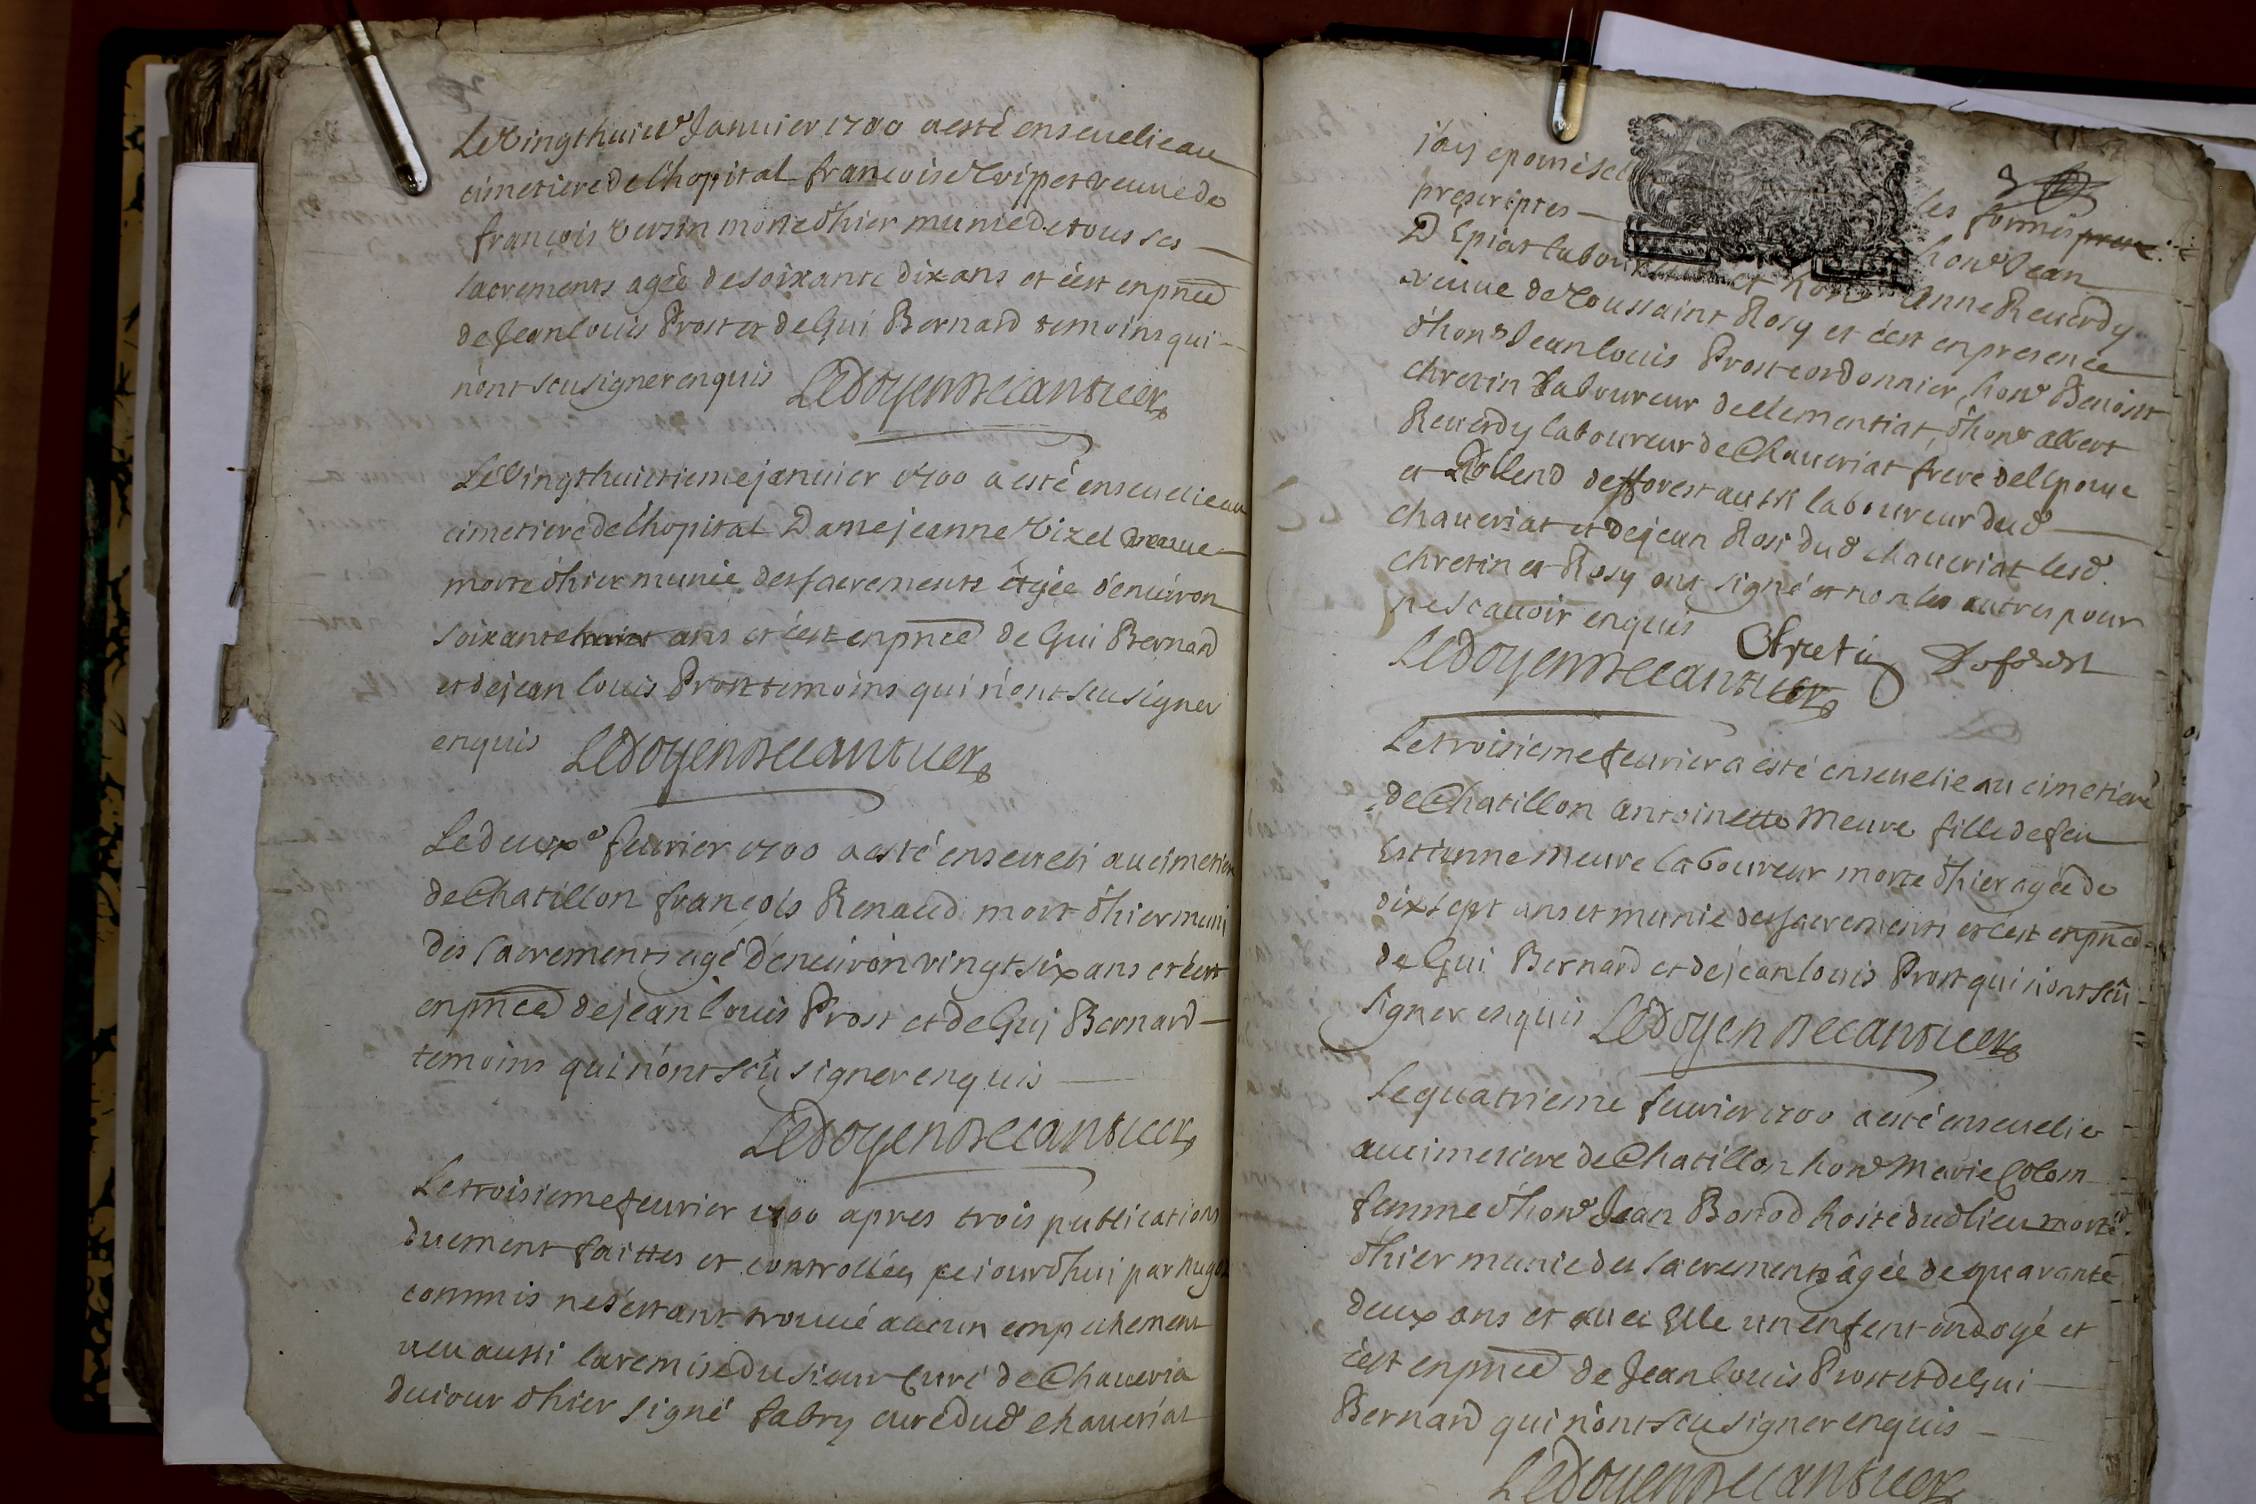 Le vingt huite Janvier 1700 a esté ensevelie au
cimetiere de l'hopital francoise Tripet veuve de
francois versin morte d'hier munie de tous ses
sacrements agée de soixante dix ans et c'est en pnce
de Jean louis Prost et de Gui Bernard temoins qui
n'ont sçu signer enquis Ledoyen
Le vingt huictieme janvier 1700 a esté ensevelie au
cimetiere de l'hopital Dame jeanne Vizel veuve
morte d'hier munie des sacrements et agée d'environ
soixante ans et c'est en pnce de Gui Bernard
et de jean louis Prost temoins qui n'ont sçu signer
enquis Ledoyen
Le deuxe fevrier 1700 a esté enseveli au cimetiere
de Chatillon françois Renaud mort d'hier muni
des sacrements agé d'environ vingt six ans et c'est
en pnce de jean louis Prost et de Gui Bernard
temoins qui n'ont sçu signer enquis
Ledoyen
Le troisieme fevrier 1700 apres trois publications
duement faittes et controllées ce jourd'hui par
commis ne s'estant trouvé aucun empechement
veu aussi la remise du sieur Curé de Chaveria
du jour d'hier signé fabry curé dud chaveriat
j'ay epousé les formes
prescriptes hone Jean
Epiat laboureur et hone Anne Reverdy
veuve de Toussaint Rosy et c'est en presence
d'hone Jean louis Prost cordonnier, hone Benoist
chretin laboureur de Clementiat, d'hone albert
Reverdy laboureur de Chaveriat frere de l'epouse
et Rolland desforest aussi laboureur dud
chaveriat et de jean Rosi dud chaveriat lesd.
chretin et Rosy ont signé et non les autres pour
ne scavoir enquis Chretin Deforest
Ledoyen
Le troisieme fevrier a esté ensevelie au cimetiere
de Chatillon antoinette Meure fille de feu
Estienne Meure laboureur morte d'hier agée de
dix sept ans et munie des sacrements et c'est en pnce
de Gui Bernard et de jean louis Prost qui n'ont sçu
signer enquis Ledoyen
Le quatrieme fevrier 1700 a esté ensevelie
au cimetiere de Chatillon hone Marie Colom
femme d'hone Jean Borrod hoste dud lieu morte
d'hier munie des sacrements âgée de quarante
deux ans et avec Elle un enfent ondoyé et
c'est en pnce de Jean louis Prost et de Gui
Bernard qui n'ont sçu signer enquis
Ledoyen